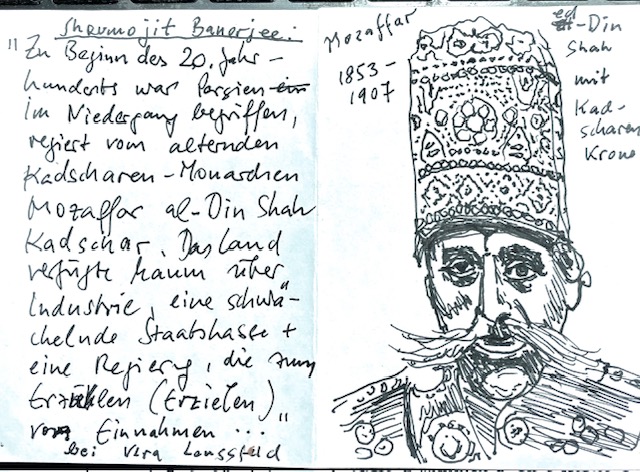 Shoumojit Banerjee.
"Zu Beginn des 20. Jahr-
hunderts war Persien ein
im Niedergang begriffen,
regiert vom alternden
Kadscharen-Monarchen
Mozaffar al-Din Shah
Kadschar. Das Land
verfügte kaum über
Industrie, eine schwä-
chelnde Staatskasse +
eine Regierg, die zum
Erzählen (Erzielen)
von Einnahmen ..."
bei Vera Lengsfeld
Mozaffar
1853-
1907
ed-Din
Shah
mit
Kad-
scharen
Krone